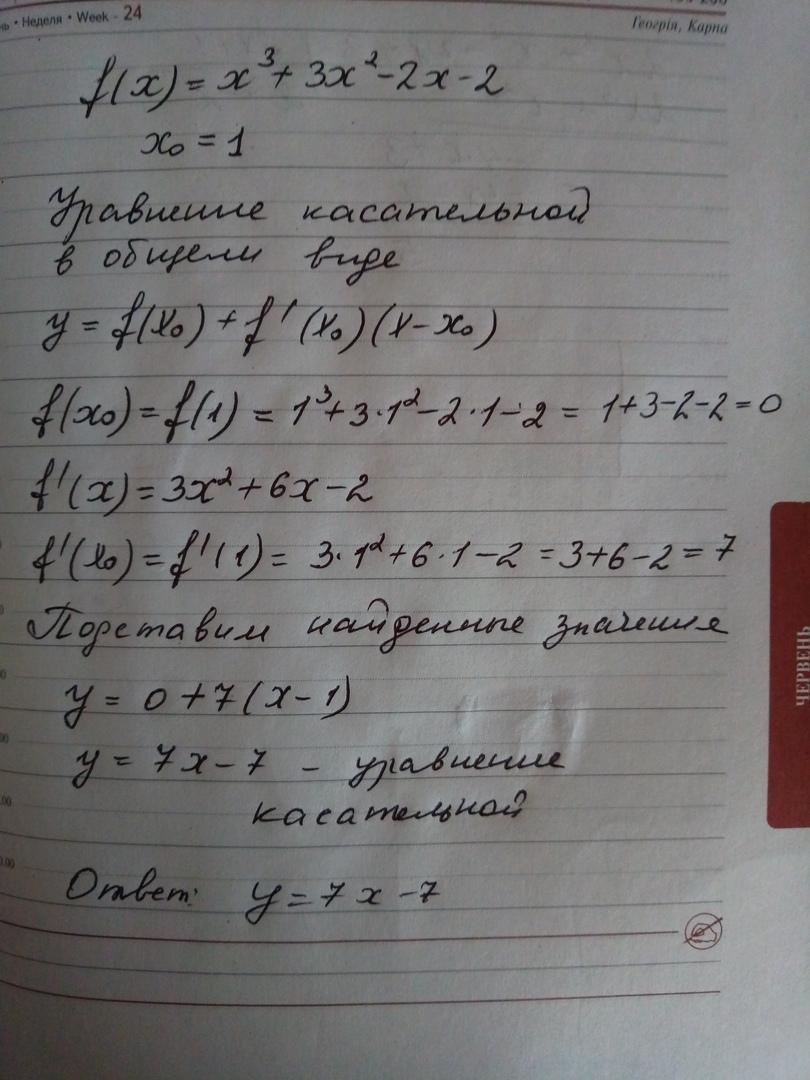 • Неделя • Week - 24
Георгія, Карпа
f(x) = x³ + 3x² - 2x - 2
x₀ = 1
Уравнение касательной
в общем виде
y = f(x₀) + f'(x₀)(x - x₀)
f(x₀) = f(1) = 1³ + 3·1² - 2·1 - 2 = 1+3-2-2=0
f'(x) = 3x² + 6x - 2
f'(x₀) = f'(1) = 3·1² + 6·1 - 2 = 3+6-2=7
Подставим найденные значения
y = 0 + 7(x - 1)
y = 7x - 7 - уравнение
касательной
Ответ: y = 7x - 7
ЧЕРВЕНЬ